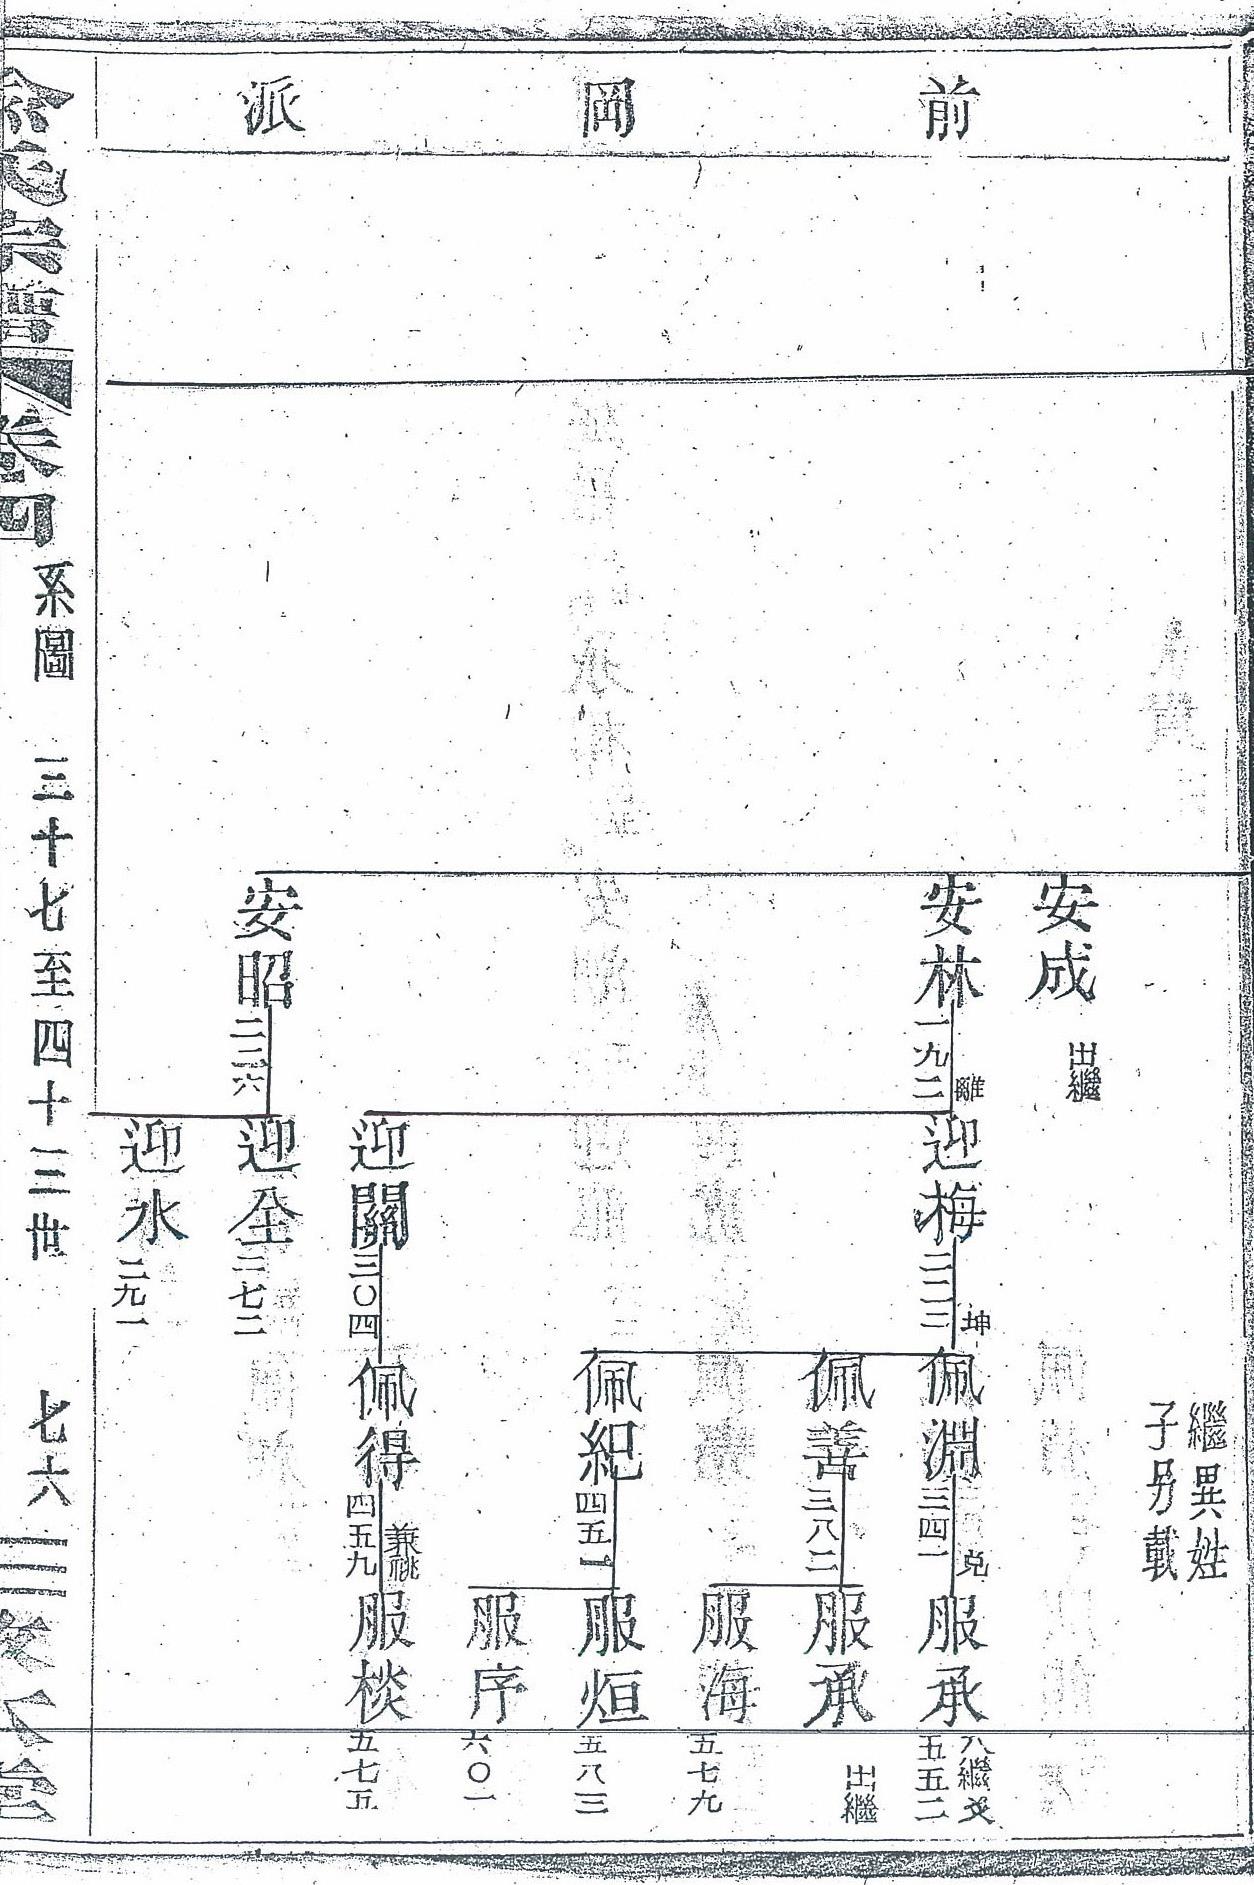 前岡派
繼異姓
子另載
安成
出繼
安林
一九二
離
安昭
二二六
迎梅
二二三
坤
迎關
三〇四
迎全
二七二
迎水
二九一
佩淵
三四一
兑
佩善
三八二
佩紀
四五一
佩得
四五九
兼祧
服承
入繼爻
五五二
服承
出繼
服海
五七九
服烜
五八三
服序
六〇一
服棪
五七五
宗譜
卷四
系圖
三十七至四十二世
七六